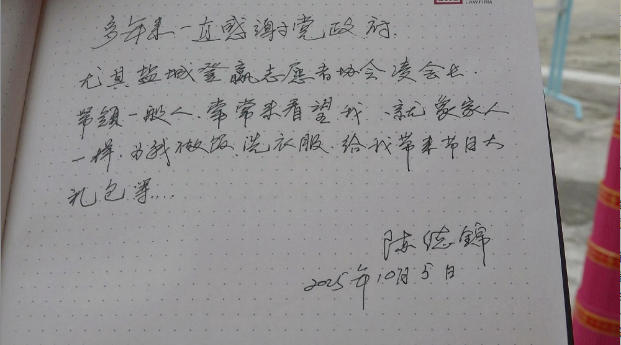 多年来一直感谢党政府.
尤其盐城登瀛志愿者协会凌会长.
带领一般人、常常来看望我、就象家人
一样.为我做饭.洗衣服.给我带来节日大
礼包等...
陈德锦
2025年10月5日